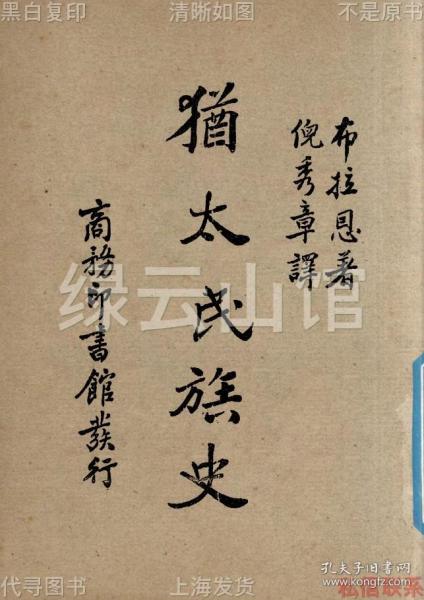 黑白复印 清晰如图 不是原书
布拉恩著
倪秀章譯
猶太民族史
商務印書館發行
绿云山馆
代寻图书 上海发货 私信联系
孔夫子旧书网
www.kongfz.com